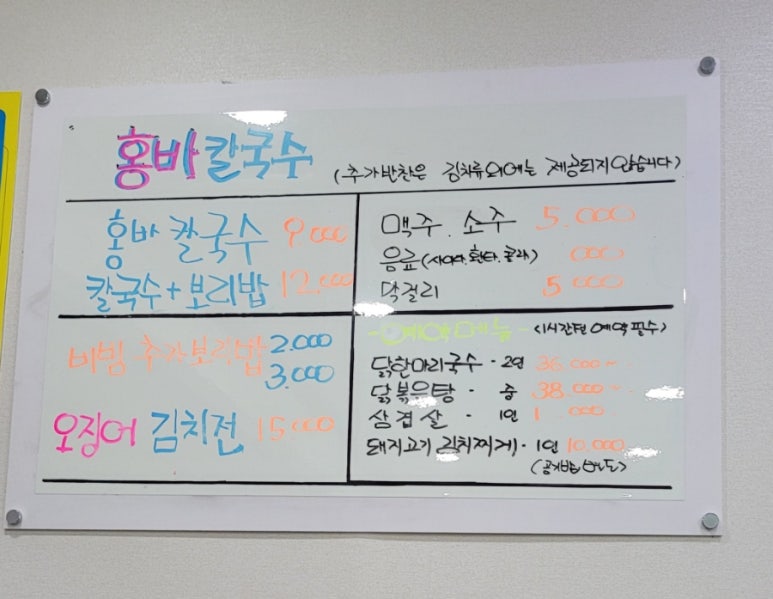 홍바 칼국수 (추가반찬은 김치류외에는 제공되지 않습니다)
홍바 칼국수 9.000
칼국수+보리밥 12.000
비빔 추가보리밥 2.000
3.000
오징어 김치전 15.000
맥주. 소주 5.000
음료(사이다.환타.콜라) 000
막걸리 5.000
-예약메뉴- (1시간전 예약필수)
닭한마리국수 · 2인 36.000~
닭볶은탕 · 중 38.000~
삼겹살 · 1인
돼지고기 김치찌게 · 1인 10.000
(공기밥 별도)